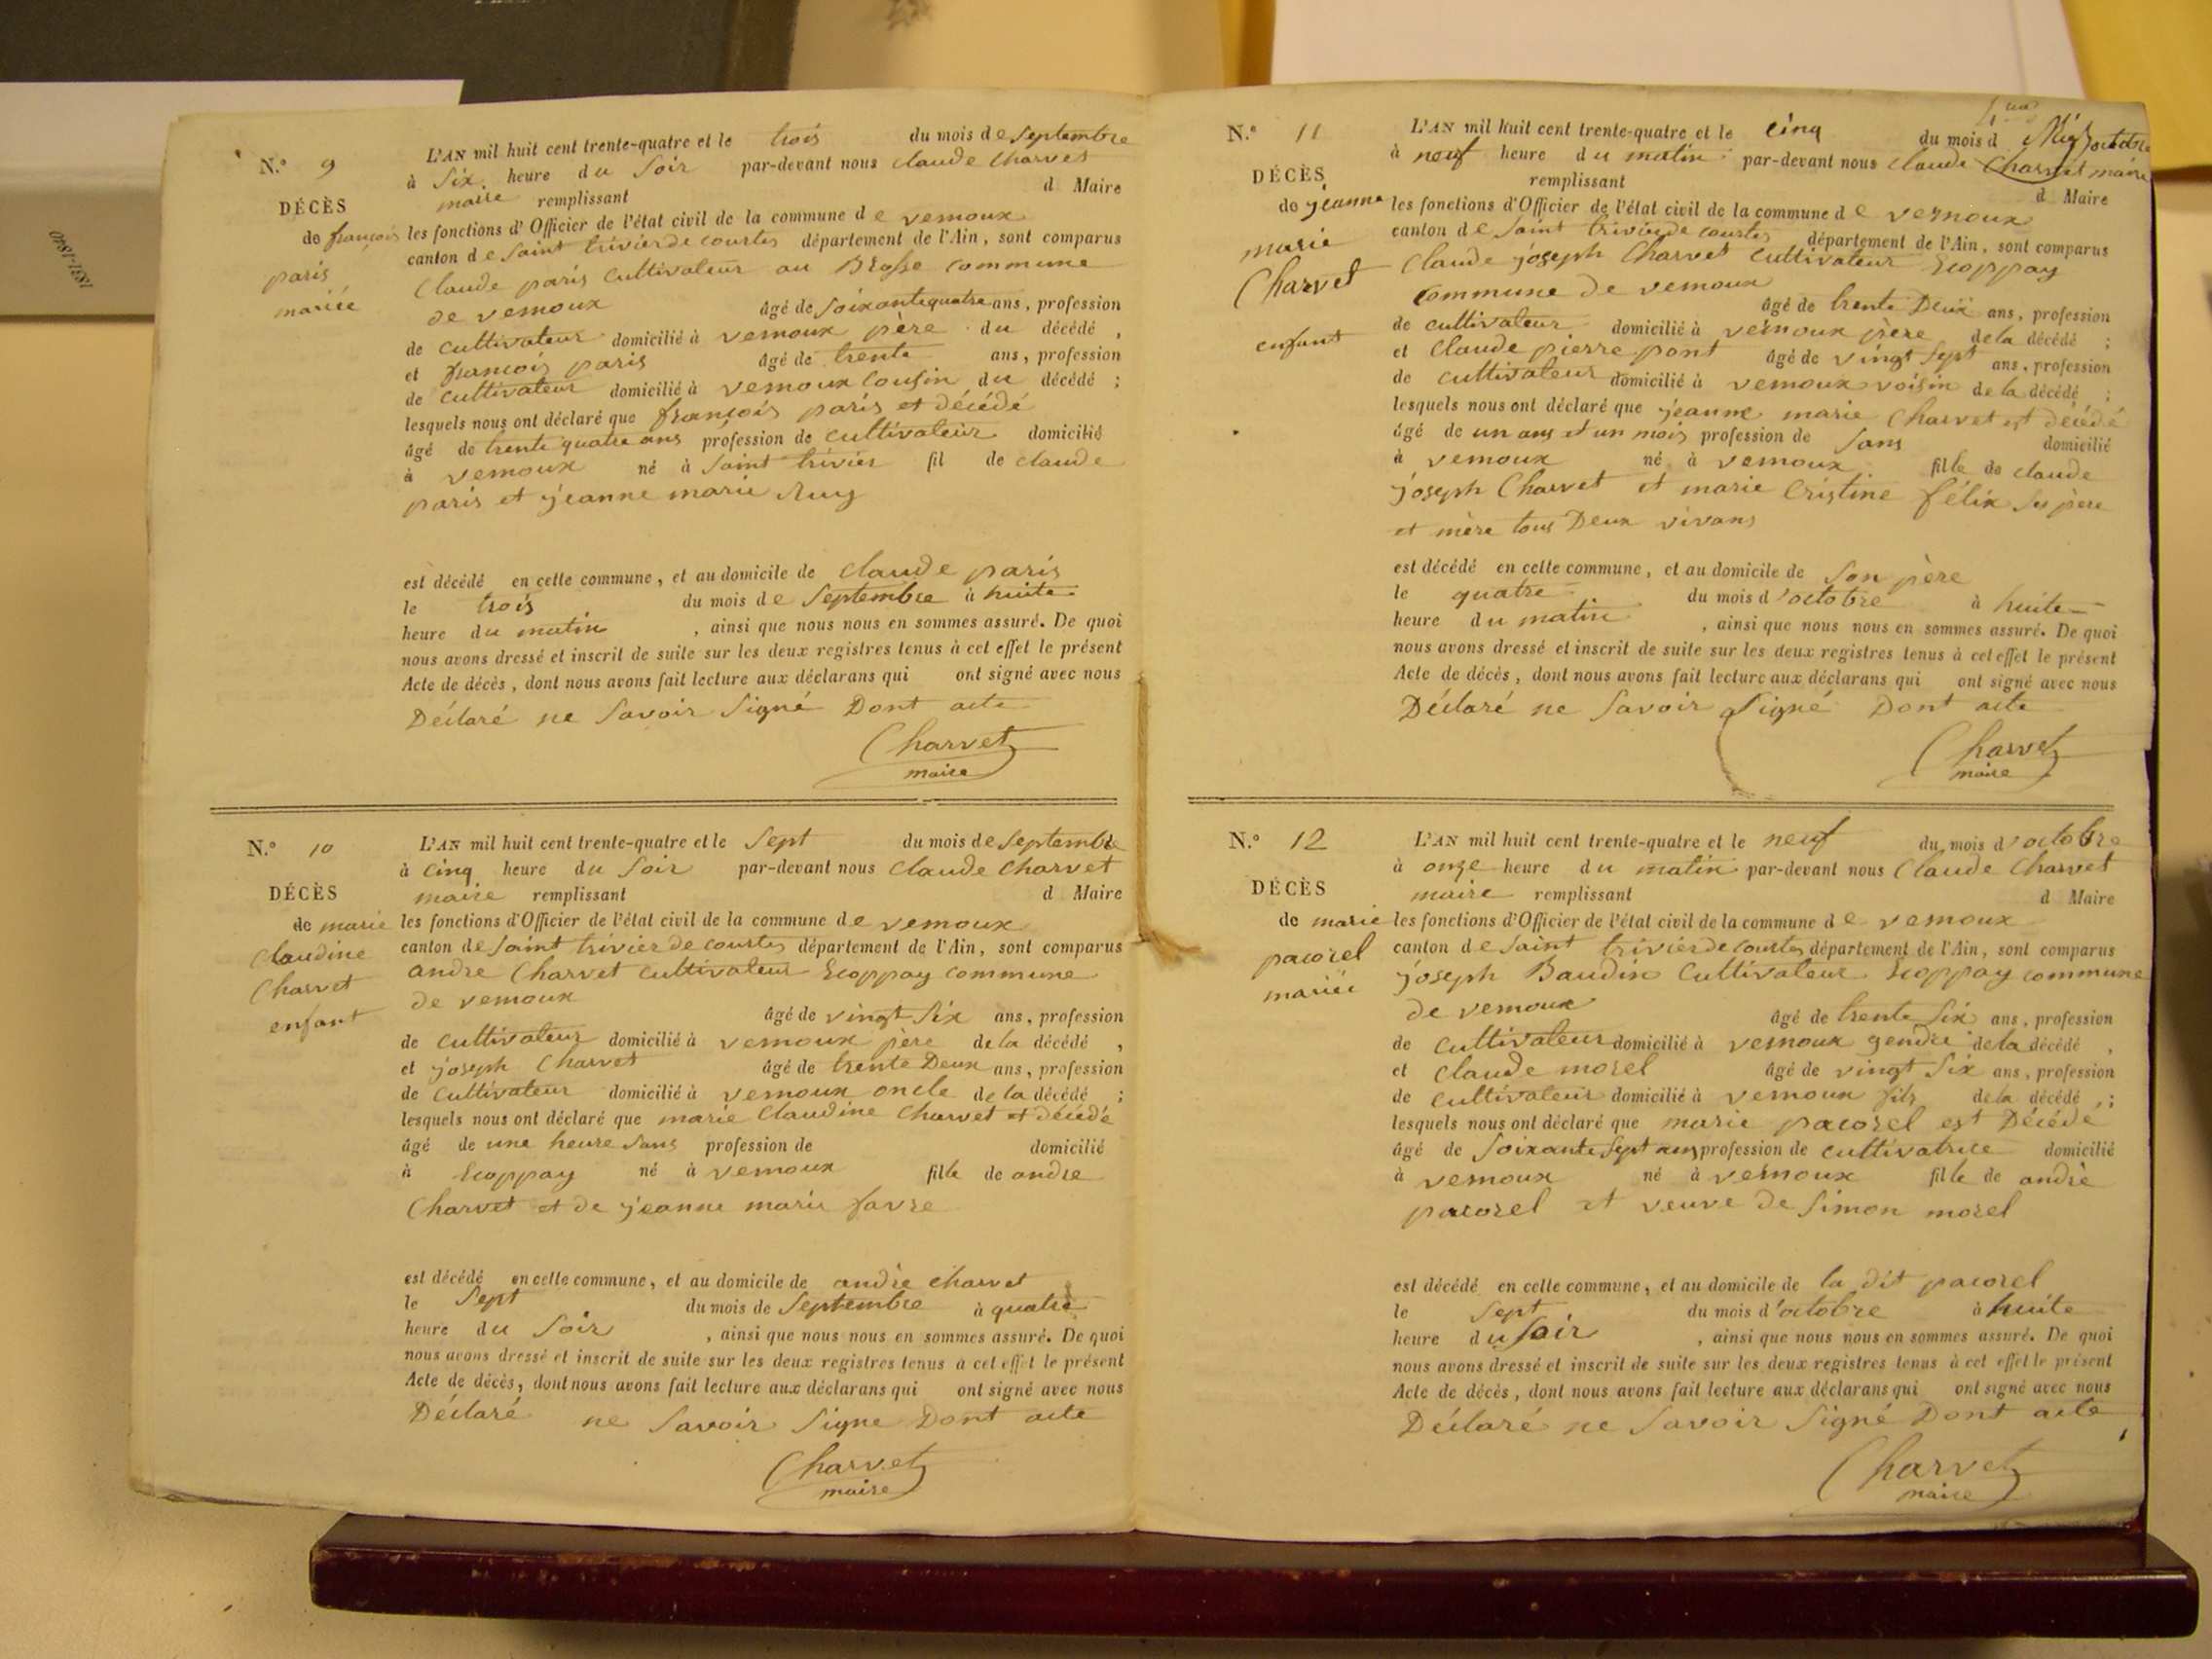 1831-1840
N.º 9
DÉCÈS
de françois
paris
mariée
L'AN mil huit cent trente-quatre et le trois du mois de Septembre
à Six heure du Soir par-devant nous claude Charvet
maire remplissant d Maire
les fonctions d'Officier de l'état civil de la commune de vernoux
canton de Saint trivier de courtes département de l'Ain, sont comparus
Claude paris Cultivateur au Brosse commune
de vernoux âgé de Soixante quatre ans, profession
de cultivateur domicilié à vernoux père du décédé ,
et françois paris âgé de trente ans, profession
de cultivateur domicilié à vernoux Cousin du décédé ;
lesquels nous ont déclaré que françois paris et décédé
âgé de trente quatre ans profession de cultivateur domicilié
à vernoux né à Saint trivier fil de claude
paris et jeanne marie Ruy
est décédé en cette commune, et au domicile de claude paris
le trois du mois de Septembre à huite
heure du matin , ainsi que nous nous en sommes assuré. De quoi
nous avons dressé et inscrit de suite sur les deux registres tenus à cet effet le présent
Acte de décès, dont nous avons fait lecture aux déclarans qui ont signé avec nous
Déclaré ne Savoir Signé Dont acte
Charvet
maire
N.º 10
DÉCÈS
de marie
Claudine
Charvet
enfant
L'AN mil huit cent trente-quatre et le Sept du mois de Septembre
à Cinq heure du Soir par-devant nous Claude Charvet
maire remplissant d Maire
les fonctions d'Officier de l'état civil de la commune de vernoux
canton de Saint trivier de courtes département de l'Ain, sont comparus
andre Charvet Cultivateur Ecoppay commune
de vernoux âgé de vingt Six ans, profession
de cultivateur domicilié à vernoux père de la décédé ,
et joseph Charvet âgé de trente Deux ans, profession
de Cultivateur domicilié à vernoux oncle de la décédé ;
lesquels nous ont déclaré que marie Claudine Charvet et décédé
âgé de une heure Sans profession de domicilié
à Ecoppay né à vernoux fille de andre
Charvet et de jeanne marie favre
est décédé en cette commune, et au domicile de andre Charvet
le Sept du mois de Septembre à quatre
heure du Soir , ainsi que nous nous en sommes assuré. De quoi
nous avons dressé et inscrit de suite sur les deux registres tenus à cet effet le présent
Acte de décès, dont nous avons fait lecture aux déclarans qui ont signé avec nous
Déclaré ne Savoir Signe Dont acte
Charvet
maire
N.º 11
DÉCÈS
de jeanne
marie
Charvet
enfant
L'AN mil huit cent trente-quatre et le cinq du mois d octobre
à neuf heure du matin par-devant nous Claude Charvet maire
remplissant d Maire
les fonctions d'Officier de l'état civil de la commune de vernoux
canton de Saint trivier de courtes département de l'Ain, sont comparus
Claude joseph Charvet Cultivateur Ecoppay
Commune De vernoux âgé de trente Deux ans, profession
de cultivateur domicilié à vernoux père de la décédé ;
et Claude pierre pont âgé de vingt Sept ans, profession
de cultivateur domicilié à vernoux voisin de la décédé ;
lesquels nous ont déclaré que jeanne marie Charvet est décédé
âgé de un ans et un mois profession de Sans domicilié
à vernoux né à vernoux fille de claude
joseph Charvet et marie Cristine félix Ses père
et mère tous Deux vivans
est décédé en cette commune, et au domicile de Son père
le quatre du mois d'octobre à huite
heure du matin , ainsi que nous nous en sommes assuré. De quoi
nous avons dressé et inscrit de suite sur les deux registres tenus à cet effet le présent
Acte de décès, dont nous avons fait lecture aux déclarans qui ont signé avec nous
Déclaré ne Savoir Signé Dont acte
Charvet
maire
N.º 12
DÉCÈS
de marie
pacorel
mariée
L'AN mil huit cent trente-quatre et le neuf du mois d'octobre
à onze heure du matin par-devant nous Claude Charvet
maire remplissant d Maire
les fonctions d'Officier de l'état civil de la commune de vernoux
canton de Saint trivier de Courtes département de l'Ain, sont comparus
joseph Baudin Cultivateur Ecoppay commune
de vernoux âgé de trente Six ans, profession
de cultivateur domicilié à vernoux gendre de la décédé ,
et claude morel âgé de vingt Six ans, profession
de cultivateur domicilié à vernoux fils de la décédé ;
lesquels nous ont déclaré que marie pacorel est Décédé
âgé de Soixante Sept ans profession de cultivatrice domicilié
à vernoux né à vernoux fille de andré
pacorel et veuve de Simon morel
est décédé en cette commune, et au domicile de la dit pacorel
le Sept du mois d'octobre à huite
heure du Soir , ainsi que nous nous en sommes assuré. De quoi
nous avons dressé et inscrit de suite sur les deux registres tenus à cet effet le présent
Acte de décès, dont nous avons fait lecture aux déclarans qui ont signé avec nous
Déclaré ne Savoir Signé Dont acte
Charvet
maire